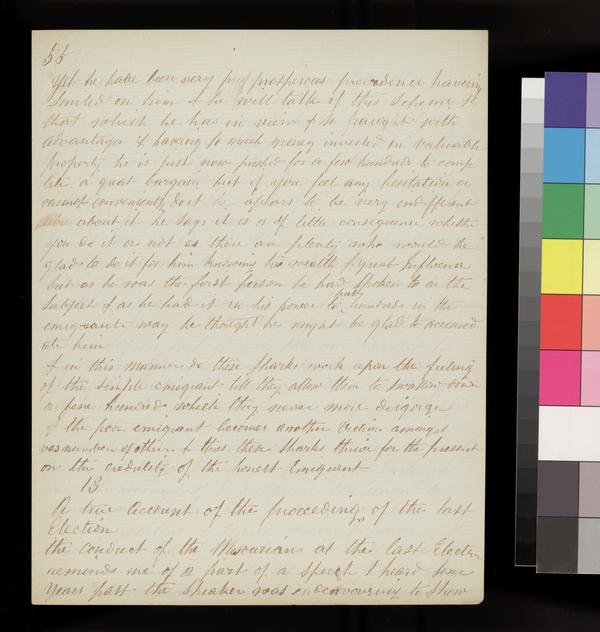 55
Yet he have been very prosperous providence having
smiled on him & he will talk of this scheme &
that which he has in view & so fraught with
advantage & having so much money invested in valuable
property he is just now pushed for a few hundreds to comp
lete a great bargain but if you feel any hesitation or
cannot conveniently do it he apears to be very indifferent
about it he says it is of little consequence whether
you do it or not as there are plenty who would be
glad to do it for him knowing his wealth & great Influence
but as he was the first person he had spoken to on the
subject & as he had it in his power to push hundreds in the
emigrant way he thought he might be glad to accomod
ate him
& in this manner do these sharks work upon the feeling
of the simple emigrant till they allow them to swallow down
a few hundred which they never more disgorge
& the poor emigrant becomes another Victim amongst
number of others & thus these Sharks thrive for the present
on the credulity of the honest Emigrant
13
A true account of the proceeding of the last
Election
the conduct of the Missourians at the last Election
reminds me of a part of a speech I heard some
years past the speaker was endeavouring to show